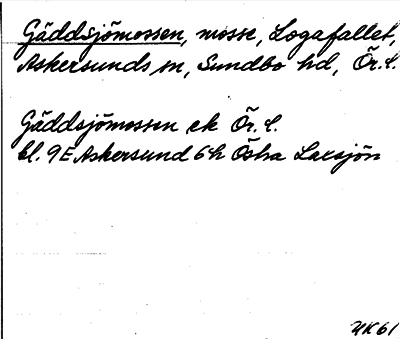 Gäddsjömossen, mosse, Logafallet,
Askersunds sn, Sundbo hd, Ör. l.
Gäddsjömossen ek Ör. l.
bl. 9E Askersund 6h Östra Laxsjön
UK 61